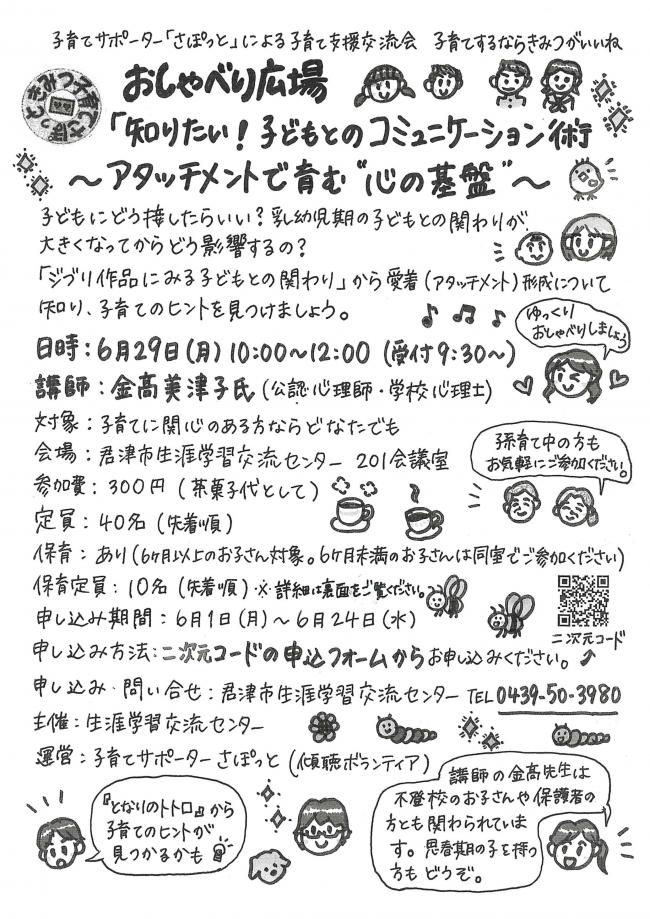 子育てサポーター「さぽっと」による子育て支援交流会 子育てするならきみつがいいね
きみつ子育てさぽっと
おしゃべり広場
「知りたい！子どもとのコミュニケーション術
～アタッチメントで育む“心の基盤”～
子どもにどう接したらいい？乳幼児期の子どもとの関わりが
大きくなってからどう影響するの？
「ジブリ作品にみる子どもとの関わり」から愛着（アタッチメント）形成について
知り、子育てのヒントを見つけましょう。
ゆっくり
おしゃべりしましょう
日時：6月29日（月）10:00～12:00（受付9:30～）
講師：金高美津子氏（公認心理師・学校心理士）
対象：子育てに関心のある方ならどなたでも
会場：君津市生涯学習交流センター 201会議室
孫育て中の方も
お気軽にご参加ください。
参加費：300円（茶菓子代として）
定員：40名（先着順）
保育：あり（6ヶ月以上のお子さん対象。6ヶ月未満のお子さんは同室でご参加ください）
保育定員：10名（先着順）・※詳細は裏面をご覧ください。
申し込み期間：6月1日（月）～6月24日（水）
二次元コード
申し込み方法：二次元コードの申込フォームからお申し込みください。
申し込み・問い合せ：君津市生涯学習交流センター TEL 0439-50-3980
主催：生涯学習交流センター
運営：子育てサポーター さぽっと（傾聴ボランティア）
『となりのトトロ』から
子育てのヒントが
見つかるかも
講師の金高先生は
不登校のお子さんや保護者の
方とも関わられていま
す。思春期の子を持つ
方もどうぞ。